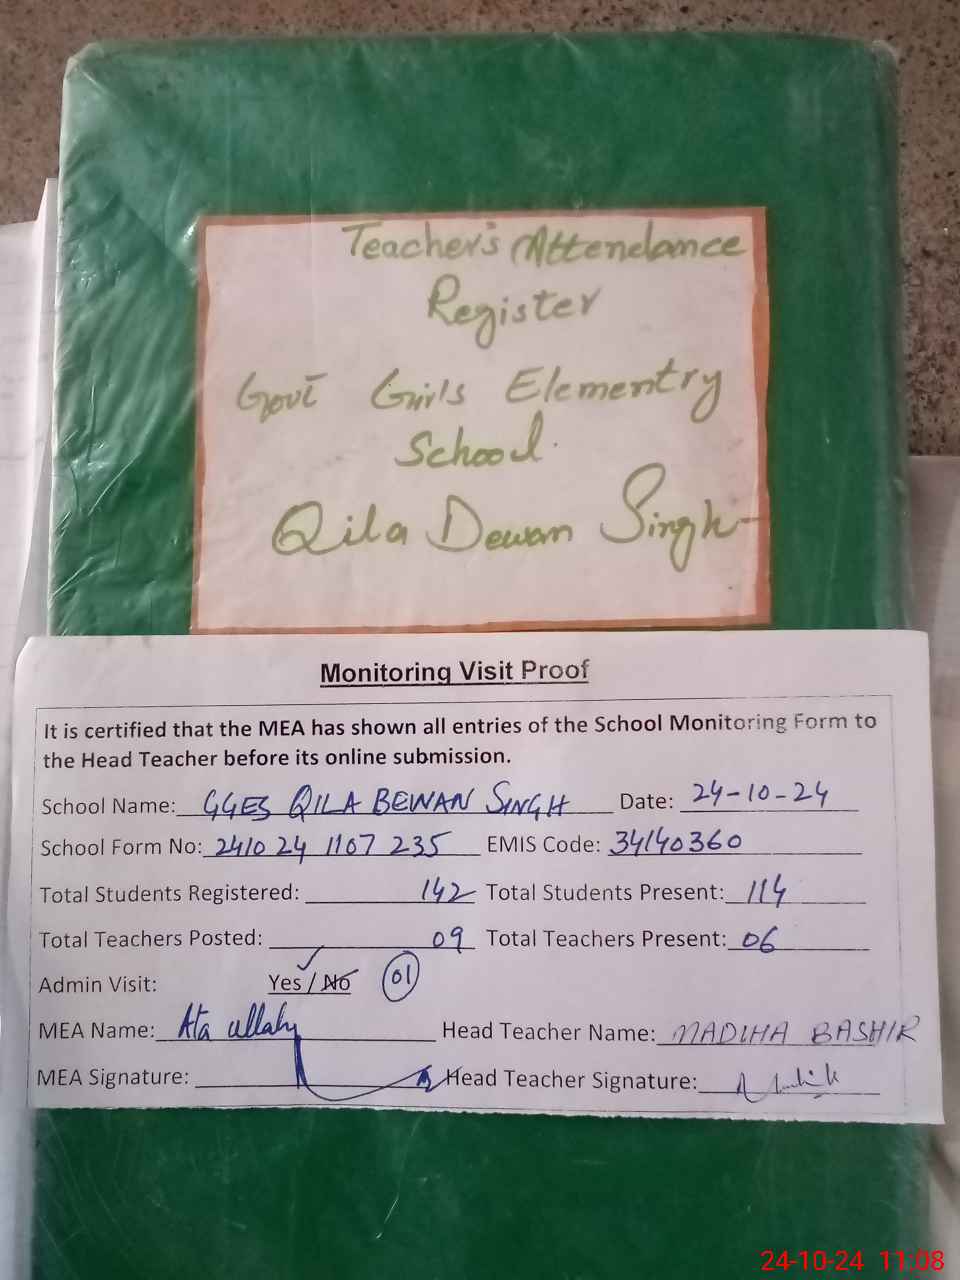 Teacher's Attendance
Register
Govt Girls Elementry
School.
Qila Dewan Singh
Monitoring Visit Proof
It is certified that the MEA has shown all entries of the School Monitoring Form to
the Head Teacher before its online submission.
School Name: GGES QILA BEWAN SINGH Date: 24-10-24
School Form No: 2410 24 1107 235 EMIS Code: 34140360
Total Students Registered: 142 Total Students Present: 114
Total Teachers Posted: 09 Total Teachers Present: 06
Admin Visit: Yes / No 01
MEA Name: Ata ullah Head Teacher Name: MADIHA BASHIR
MEA Signature: Head Teacher Signature:
24-10-24 11:08